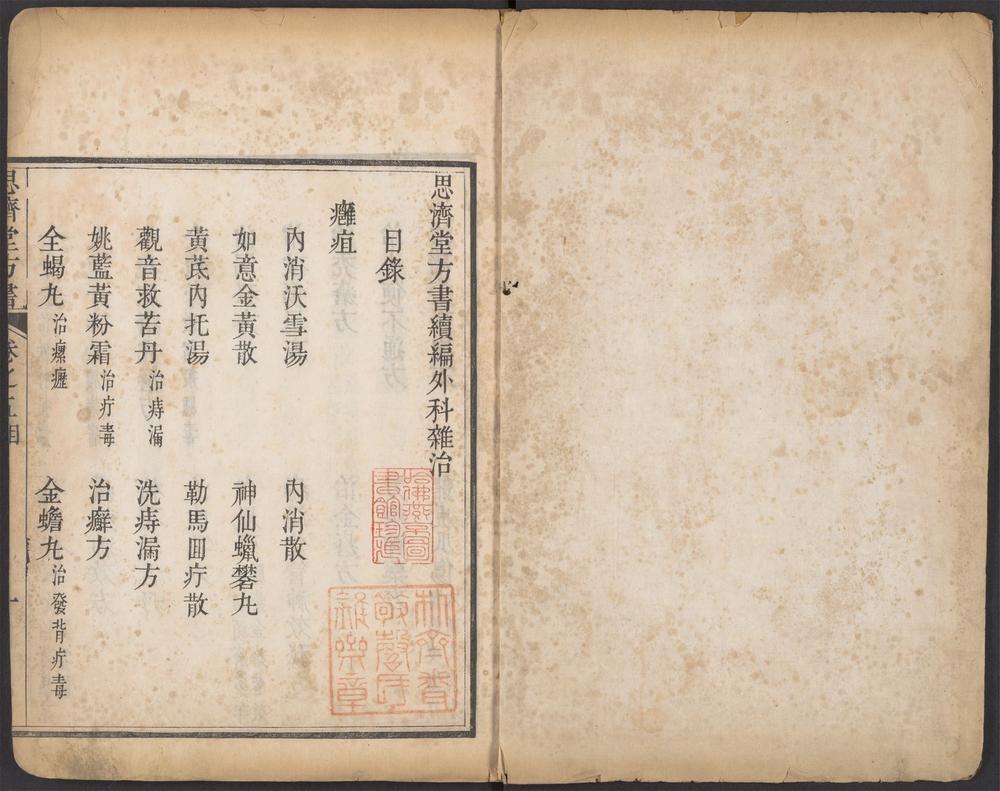 思濟堂方書續編外科雜治
目錄
癰疽
內消沃雪湯　內消散
如意金黃散　神仙蠟礬丸
黃茋內托湯　勒馬回疔散
觀音救苦丹治痔漏　洗痔漏方
姚藍黃粉霜治疔毒　治癬方
全蝎丸治瘰癧　金蟾丸治發背疔毒
思濟堂方書　卷之五　目　一
哈佛燕京圖書館珍藏